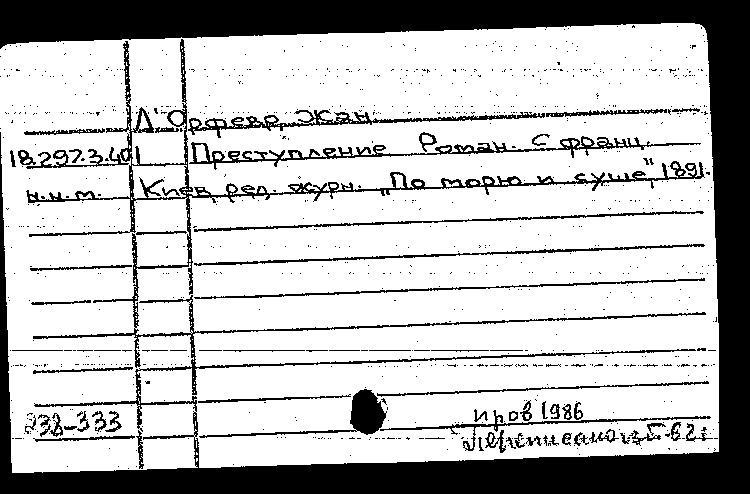 Л'Орфевр, Жан.
18.297.3.401 Преступление Роман. С франц.
н.и.т. Киев, ред. журн. „По морю и суше", 1891.
238-333
пров 1986
Переписано из